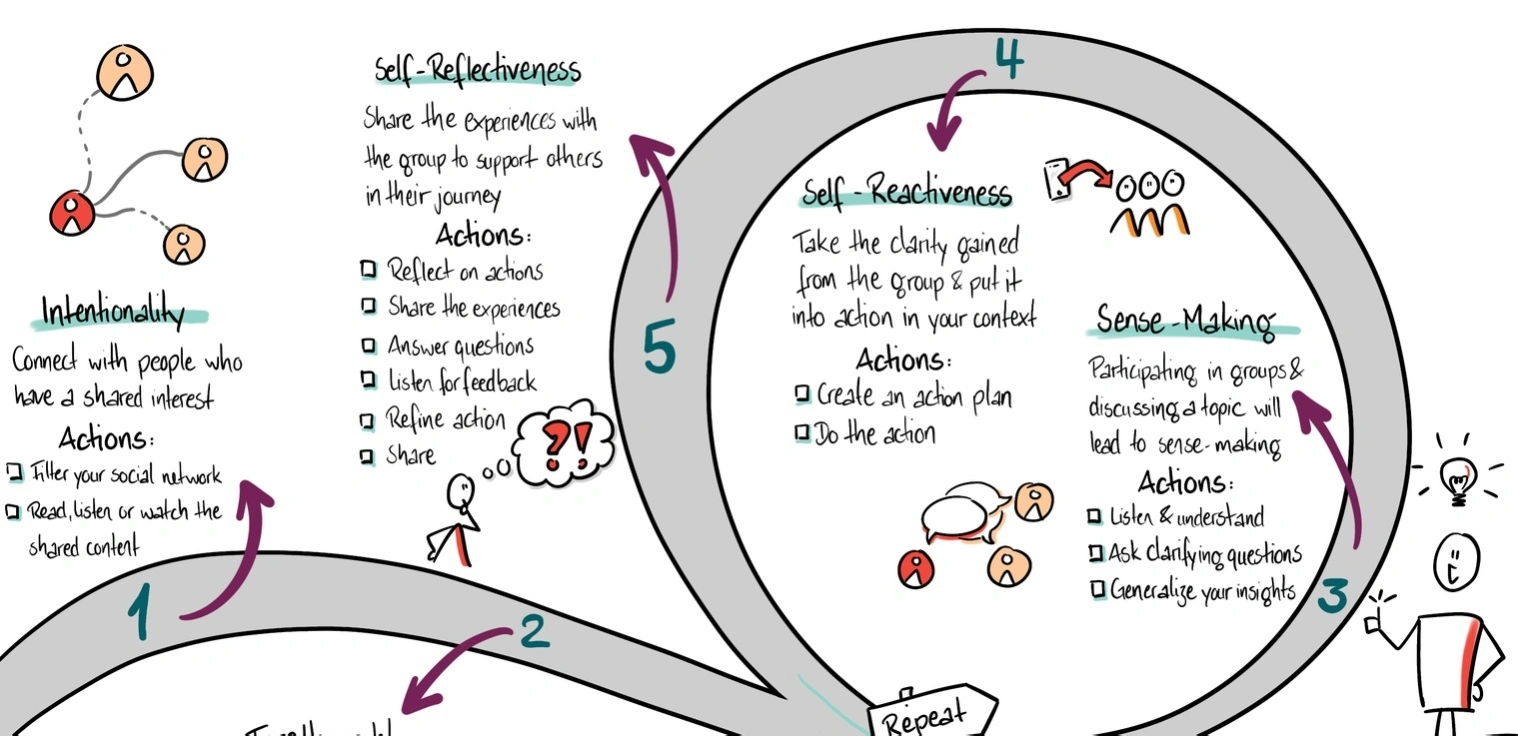 Intentionality
Connect with people who
have a shared interest
Actions:
Filter your social network
Read, listen or watch the
shared content
1
2
Self-Reflectiveness
Share the experiences with
the group to support others
in their journey
Actions:
Reflect on actions
Share the experiences
Answer questions
Listen for feedback
Refine action
Share
?!
5
4
Self-Reactiveness
Take the clarity gained
from the group & put it
into action in your context
Actions:
Create an action plan
Do the action
Sense-Making
Participating in groups &
discussing a topic will
lead to sense-making
Actions:
Listen & understand
Ask clarifying questions
Generalize your insights
3
Repeat